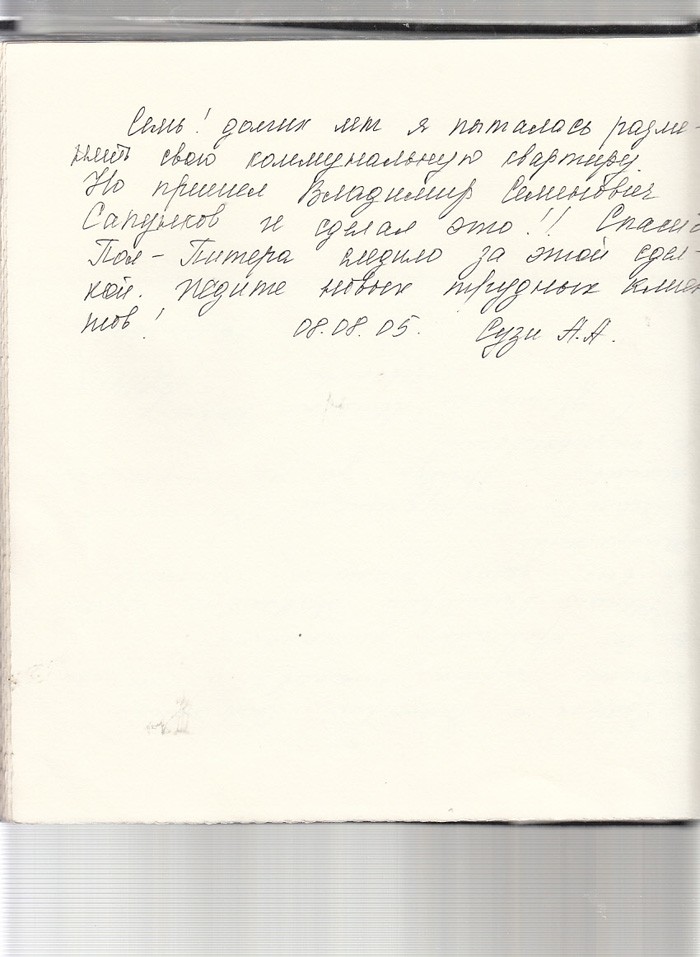 Семь! долгих лет я пыталась разме-
нять свою коммунальную квартиру.
Но пришел Владимир Семенович
Сапунков и сделал это!!! Спаси
Пол-Питера следило за этой сдел-
кой. Ждите новых трудных клиен
тов!
08.08.05. Сузи А.А.